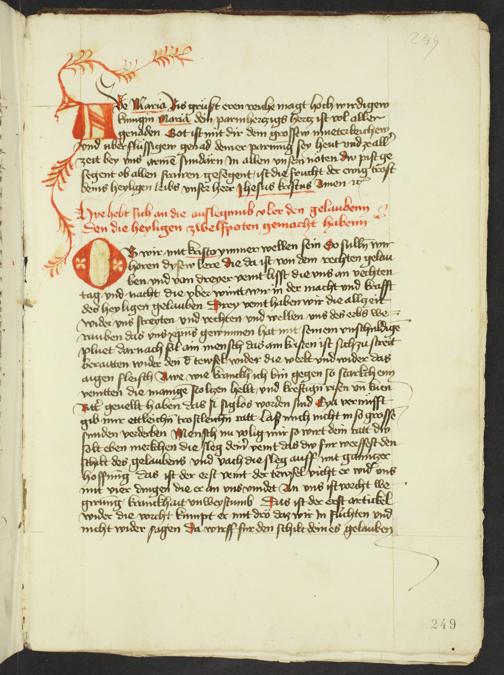 249
Ave Maria bis grüst eren reiche magt hoch wirdigew
künigin Maria dein parmherczigs hercz ist vol aller
genaden Got ist mit dir dein grossew
und uberflüssigew genad deiner parmung sey heut und
zeit bey uns armen sündärn in allen unsern nöten Dw pist ge
segent ob allen frawen gesegent ist die frucht der ewig trost
deins heyligen leibs unser herr Jhesus kristus Amen
Hye hebt sich an die auslegnuß uber den gelauben
Den die heyligen zwelfpoten gemacht haben
Ob wir mit kristo ymmer wellen sein So sull wir
hören dysew lere die da ist von dem rechten gelau
ben und von dreyer veint list die uns an vechten
tag und nacht die uber wint wir in der macht und krafft
des heyligen gelauben Drey veint haben wir die allzeit
wider uns streyten und vechten und wellen uns des erbs
rauben das uns gewunnen hat mit seinem unschuldigen
pluet darnach sol ain mensch das ain kristen ist sich zu streit
beraitten wider den tewfel wider die welt und wider das
aigen fleisch Awe wie kranckh ich bin gegen so starckhen
veintten die manige stolczen helt und krefftign risen
gevelt haben das si siglos worden sind vernüfft
gib mir ettleichn trostleichn ratt las mich nicht in so grosse
sünden verderben Mensch nu volig mir so wirt dein ratt
solt eben merckhen die sleg deiner veint das dw für werffest den
schilt des gelaubens und vach die sleg auff mit ganczer
hoffnung das ist der erst veint der tewfel vicht er wider uns
mit vier dingen die er an uns vindet An uns ist vorcht be
girung kranckhait unweystumb Das ist der erst artickel
wider die vorcht kumpt er mit dro daz wir in fürchten und
nicht wider sagen Da würff für den schilt deines gelauben
249